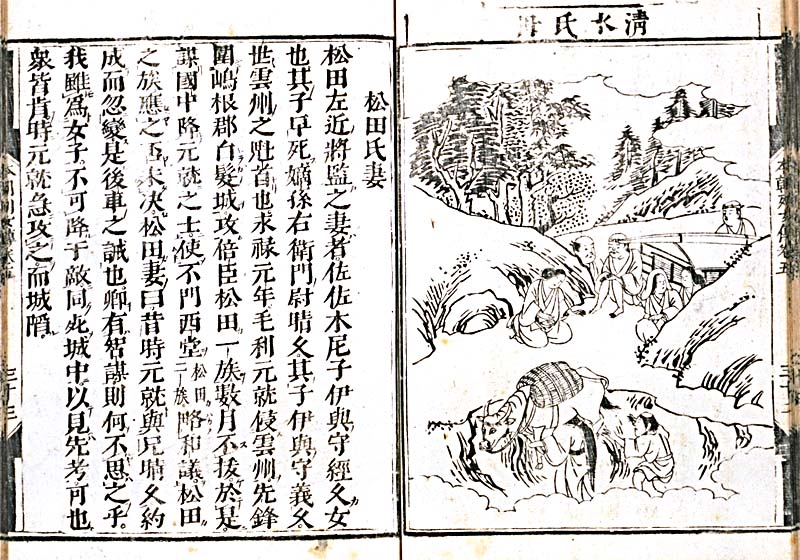 清水氏母
松田氏妻
松田左近將監之妻者佐佐木尼子伊與守經久女
也其子早死嫡孫右衛門尉晴久其子伊與守義久
世雲州之魁首也永祿元年毛利元就侵雲州先鋒
圍嶋根郡白髮城攻倍臣松田一族數月不拔於是
謀國中降元就之士使不門西堂松田一族略和議松田
之族應之否未决松田妻曰昔時元就與兄晴久約
成而忽變是後車之誡也卿有智謀則何不思之乎
我雖爲女子不可降于敵同死城中以見先考可也
衆皆肯時元就急攻之而城陷